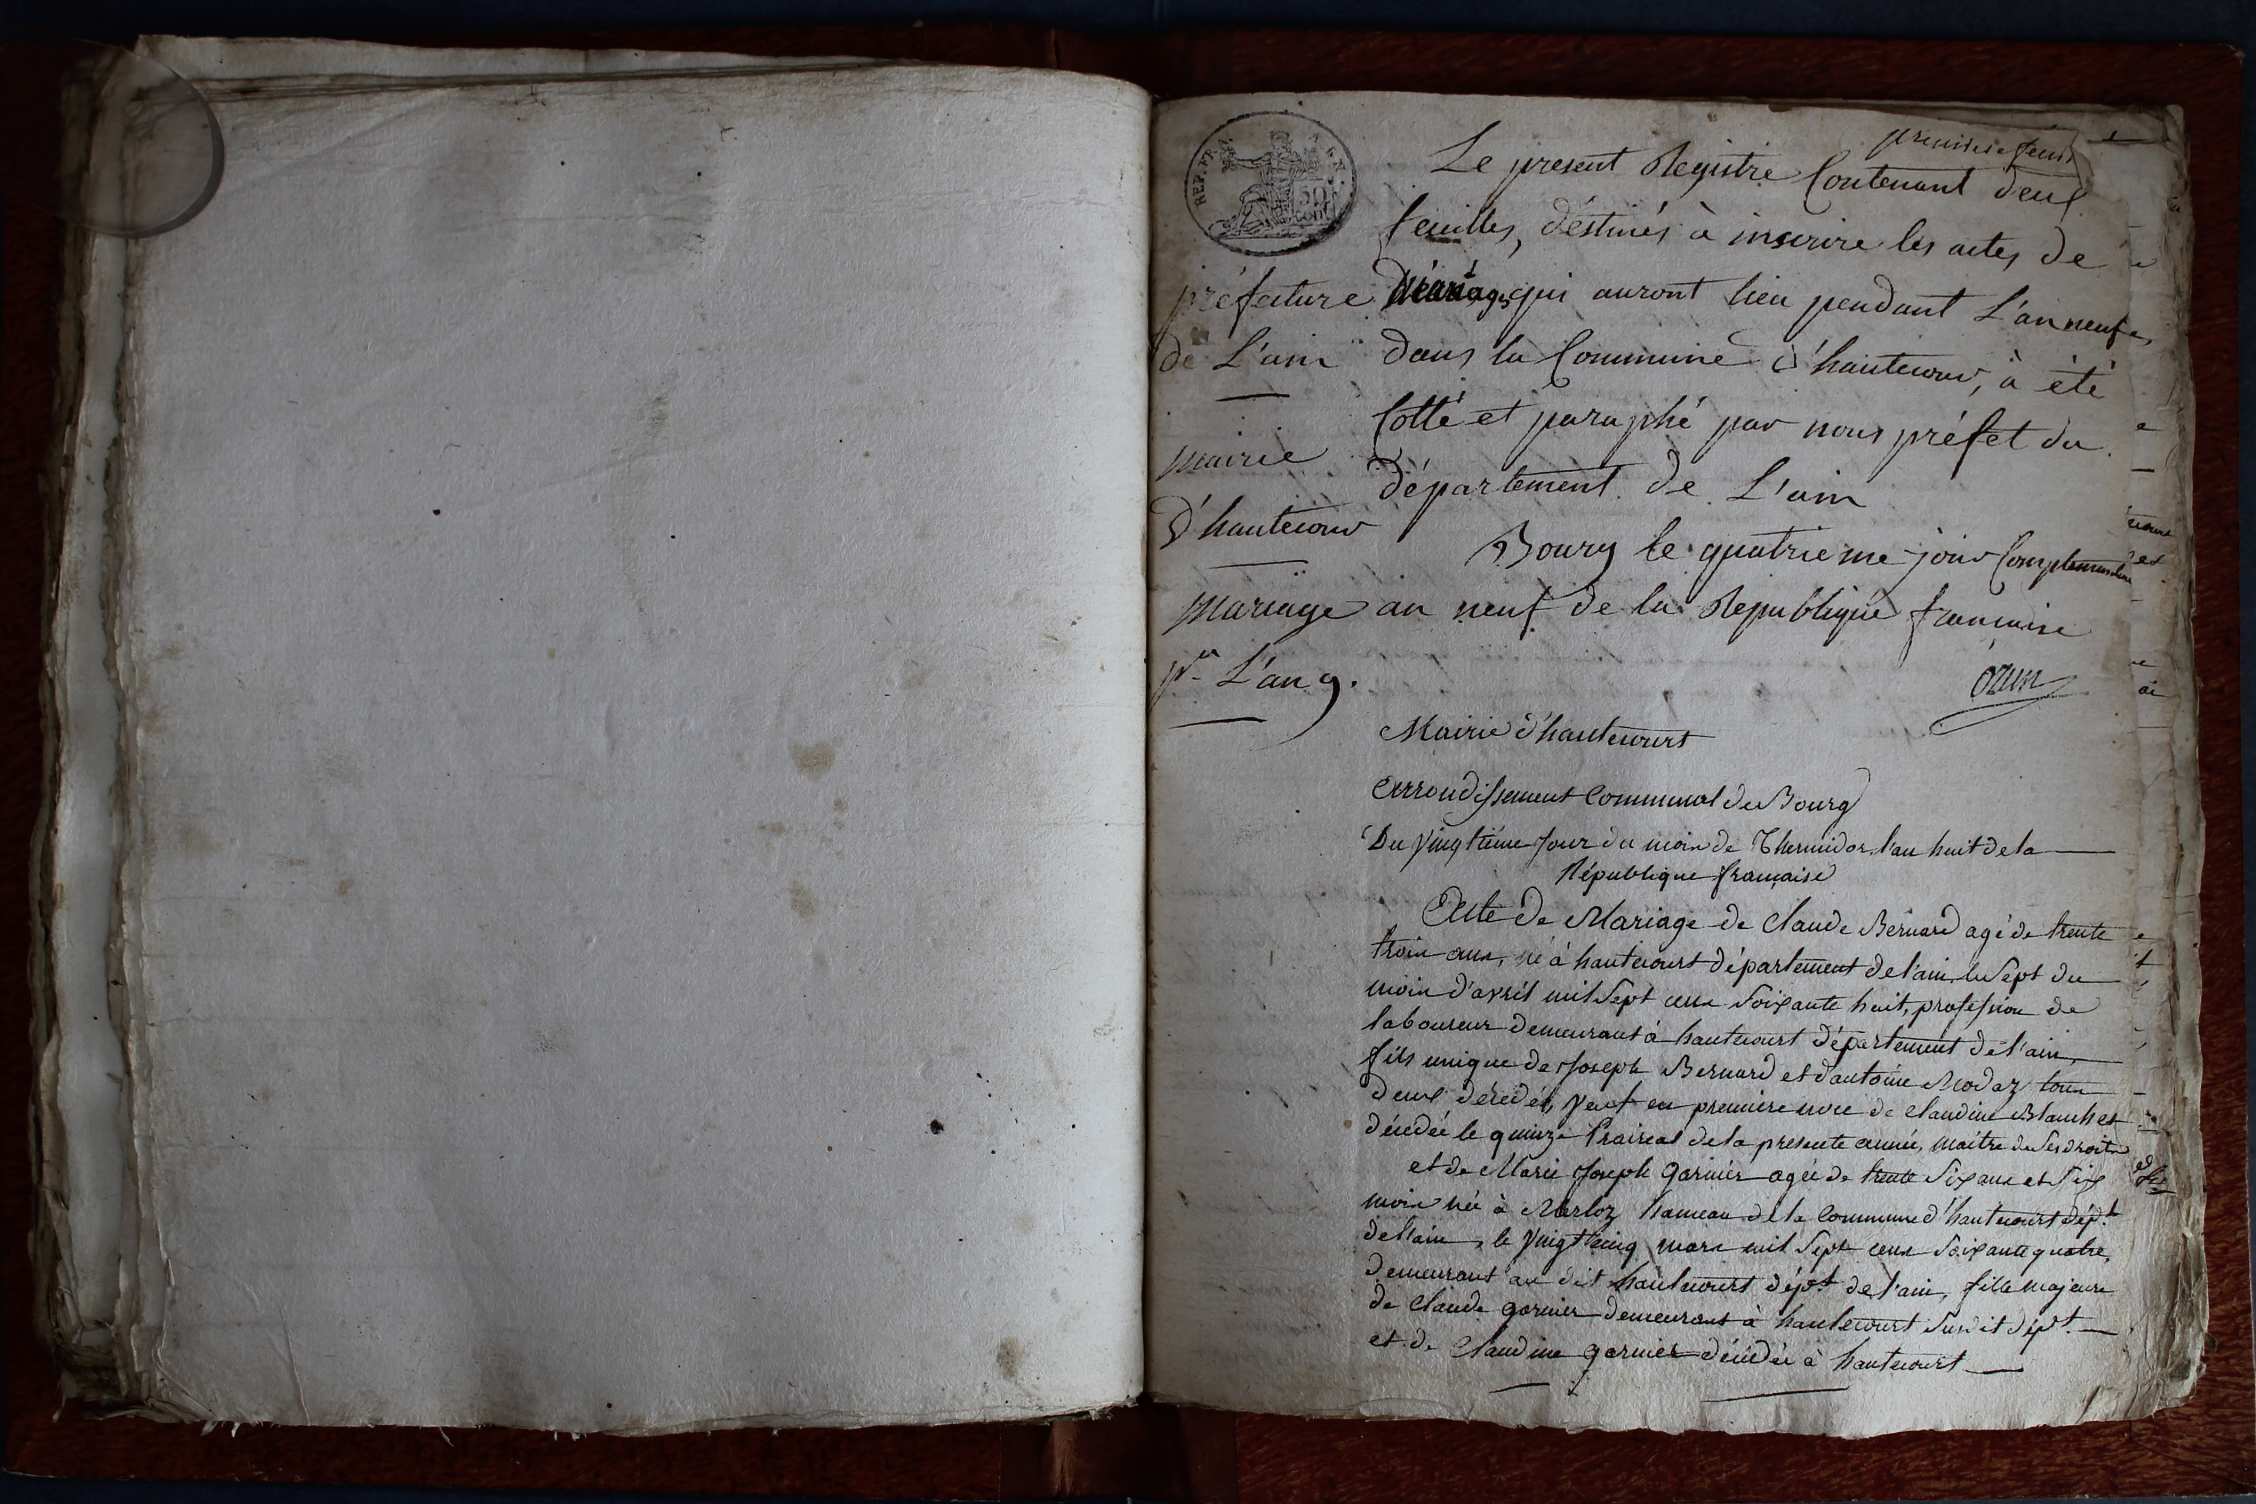 REP. FRA
50 cent
premiere feuil
Le present Registre Contenant deux
feuilles, déstinés à inscrire les actes de
mariages qui auront lieu pendant L'an neuf
dans la Commune d'hautecour, à été
Cotté et paraphé par nous préfet du
département de L'ain
Bourg le quatrieme jour Complementaire
an neuf de la Republique francaise
Ozun
préfecture
de L'ain
mairie
d'hautecour
mariage
pr. L'an 9.
Mairie d'hautecourt
Arrondissement Communal de Bourg
Du vingtième jour du mois de Thermidor l'an huit de la
République française
Acte de Mariage de Claude Bernard agé de trente
trois ans, né à hautecourt département de l'ain, le sept du
mois d'avril mil sept cens soixante huit, profession de
laboureur demeurant à hautecourt département de l'ain,
fils unique de Joseph Bernard et d'antoine Modaz tous
deux décedés, veuf en première noce de claudine Blanchet
décedée le quinze Prairial de la presente année, maitre de ses droits
et de Marie Joseph garnier agée de trente six ans et six
mois née à Merloz hameau de la Commune d'hautecourt dépt.
de l'ain, le vingt cinq mars mil sept cens soixante quatre,
demeurant au dit hautecourt dépt. de l'ain, fille majeure
de Claude garnier demeurant à hautecourt susdit dépt.
et de Claudine garnier décédée à hautecourt